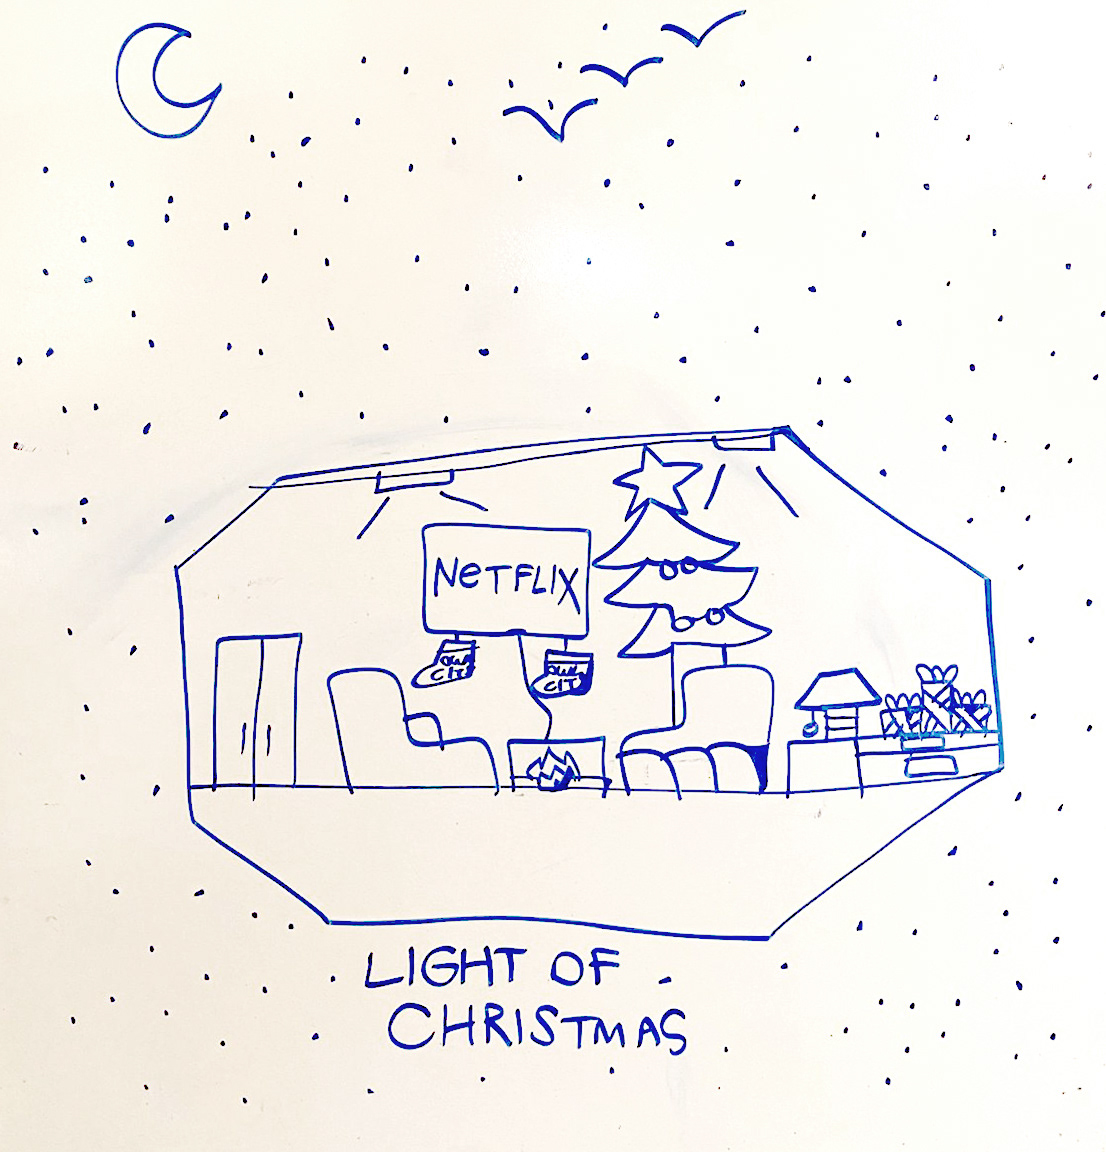 NeTFLIX
OWL
CITY
OWL
CITY
LIGHT OF
CHRISTMAS